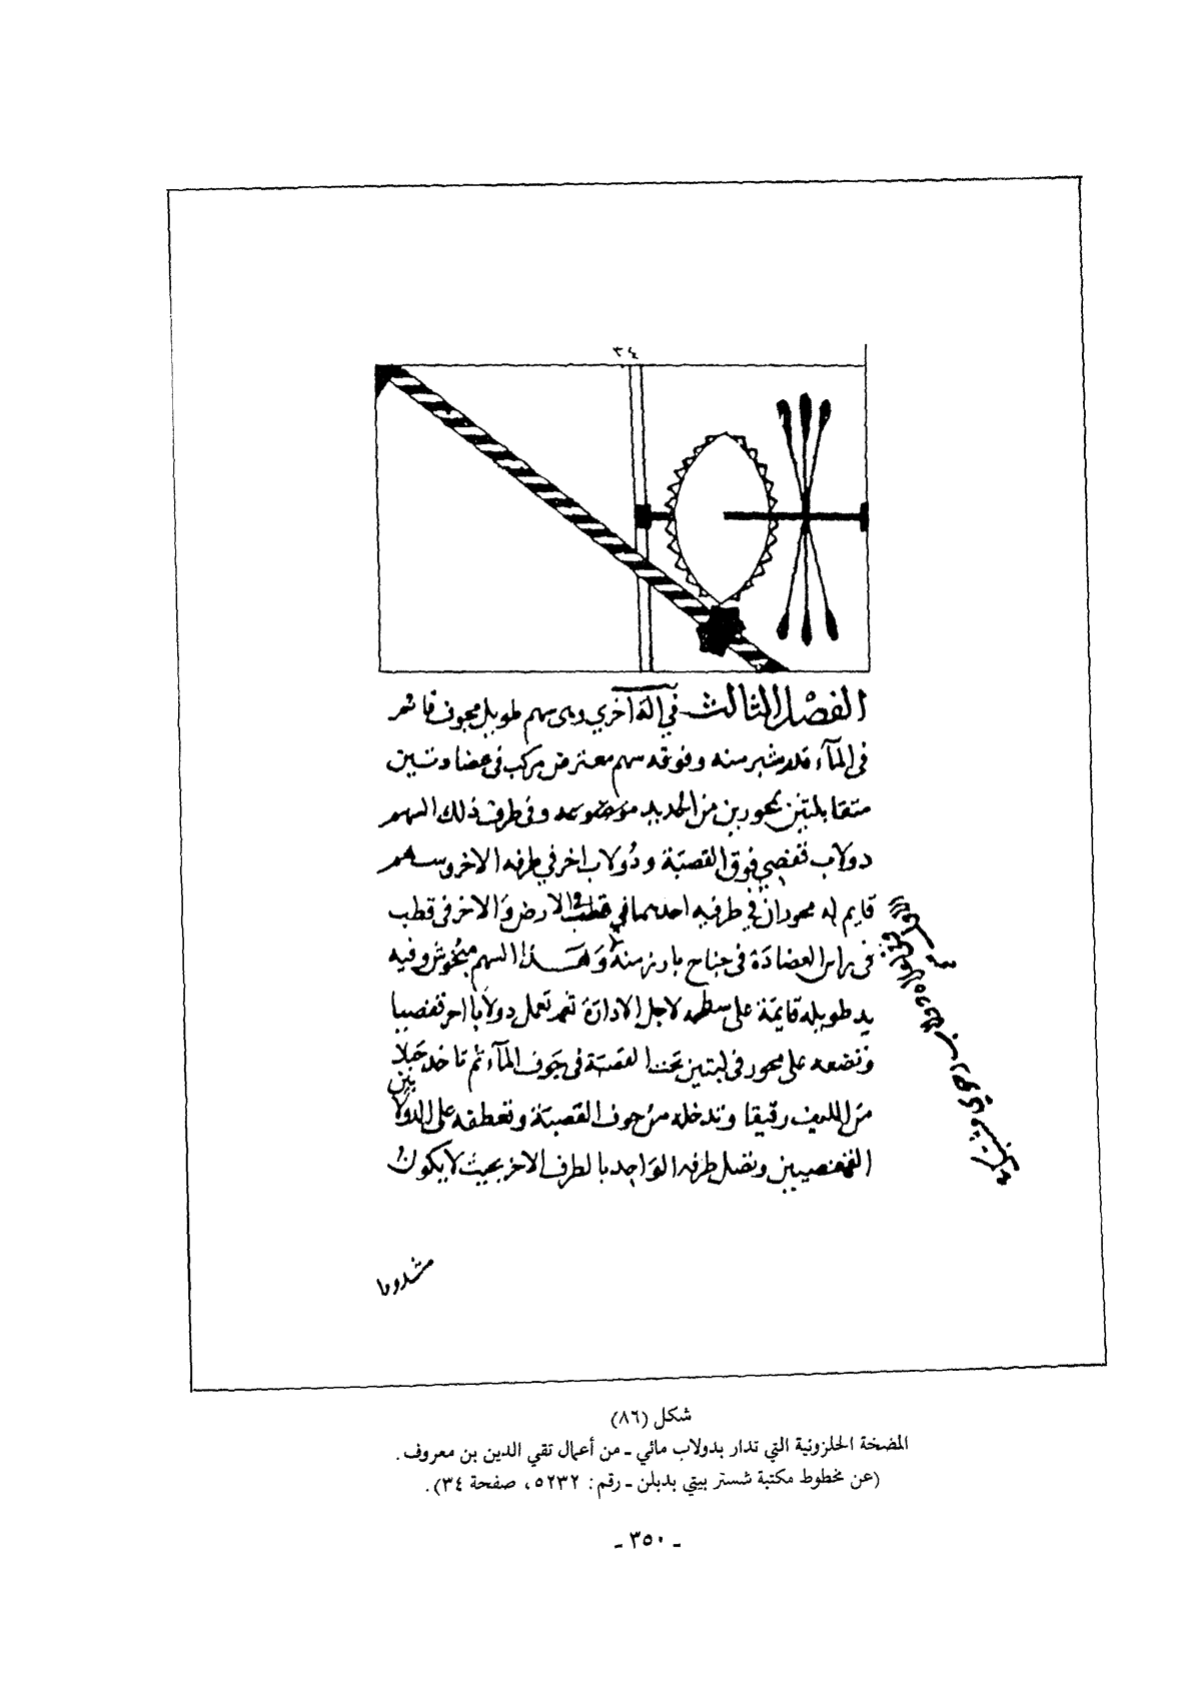 ٣٤
الفصل الثالث في آلة أخري وهى سهم طويل مجوف قائم
فى المآء قدر شبر منه وفوقه سهم معترض مركب فى عضادتين
متقابلتين بمحورين من الحديد وفى طرف ذلك السهم
دولاب قفصي فوق القصبة ودولاب اخر في طرفه الاخر وسهم
قايم له محوران في طرفيه احدهما في قطب الارض والاخر فى قطب
فى راس العضادة فى جناح بارز منه وهذا السهم وفيه
يد طويله قايمة على سطحه لاجل الادارة ثم تعمل دولابا اخر قفصيا
وتضعه على محور فى لبتين تحت القصبة فى جوف المآء ثم تاخذ حبلا
من الليف رقيقا وتدخله من جوف القصبة وتعطفه على الدولابين
القفصيين وتصل طرفه الواحد بالطرف الاخر بحيث لا يكون
مشدودا
شكل (٨٦)
المضخة الحلزونية التي تدار بدولاب مائي ـ من أعمال تقي الدين بن معروف.
(عن مخطوط مكتبة شستر بيتي بدبلن ـ رقم: ٥٢٣٢، صفحة ٣٤).
ـ ٣٥٠ ـ